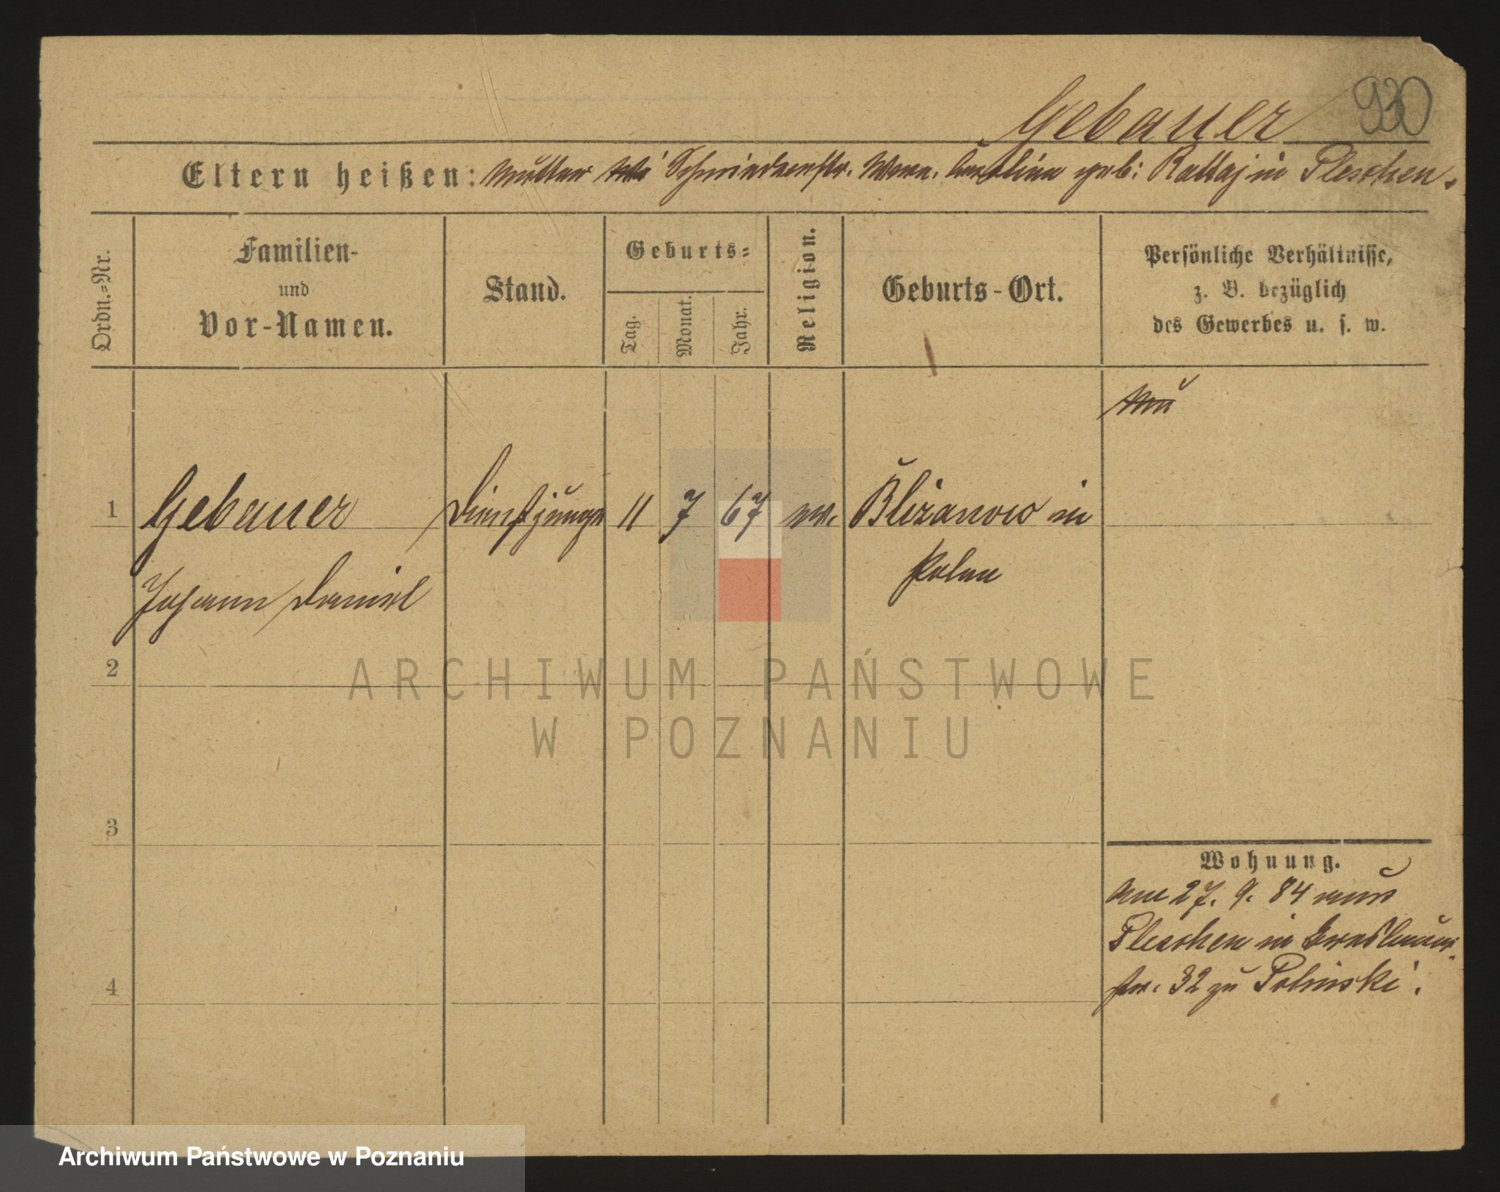 Gebauer 930
Eltern heißen: Mutter Schmiedemstr. Wwe. geb: Rattaj in Pleschen.
Ordn.-Nr.
Familien-
und
Vor-Namen.
Stand.
Geburts-
Tag.
Monat.
Jahr.
Religion.
Geburts-Ort.
Persönliche Verhältnisse,
z. B. bezüglich
des Gewerbes u. s. w.
1 Gebauer Dienstjunge 11 7 67 ev. Blizanow in
Johann Daniel Polen
2
3
4
Wohnung.
Am 27. 9. 84 aus
Pleschen in Breslauer-
str. 32 zu Polinski.
ARCHIWUM PAŃSTWOWE
W POZNANIU
Archiwum Państwowe w Poznaniu